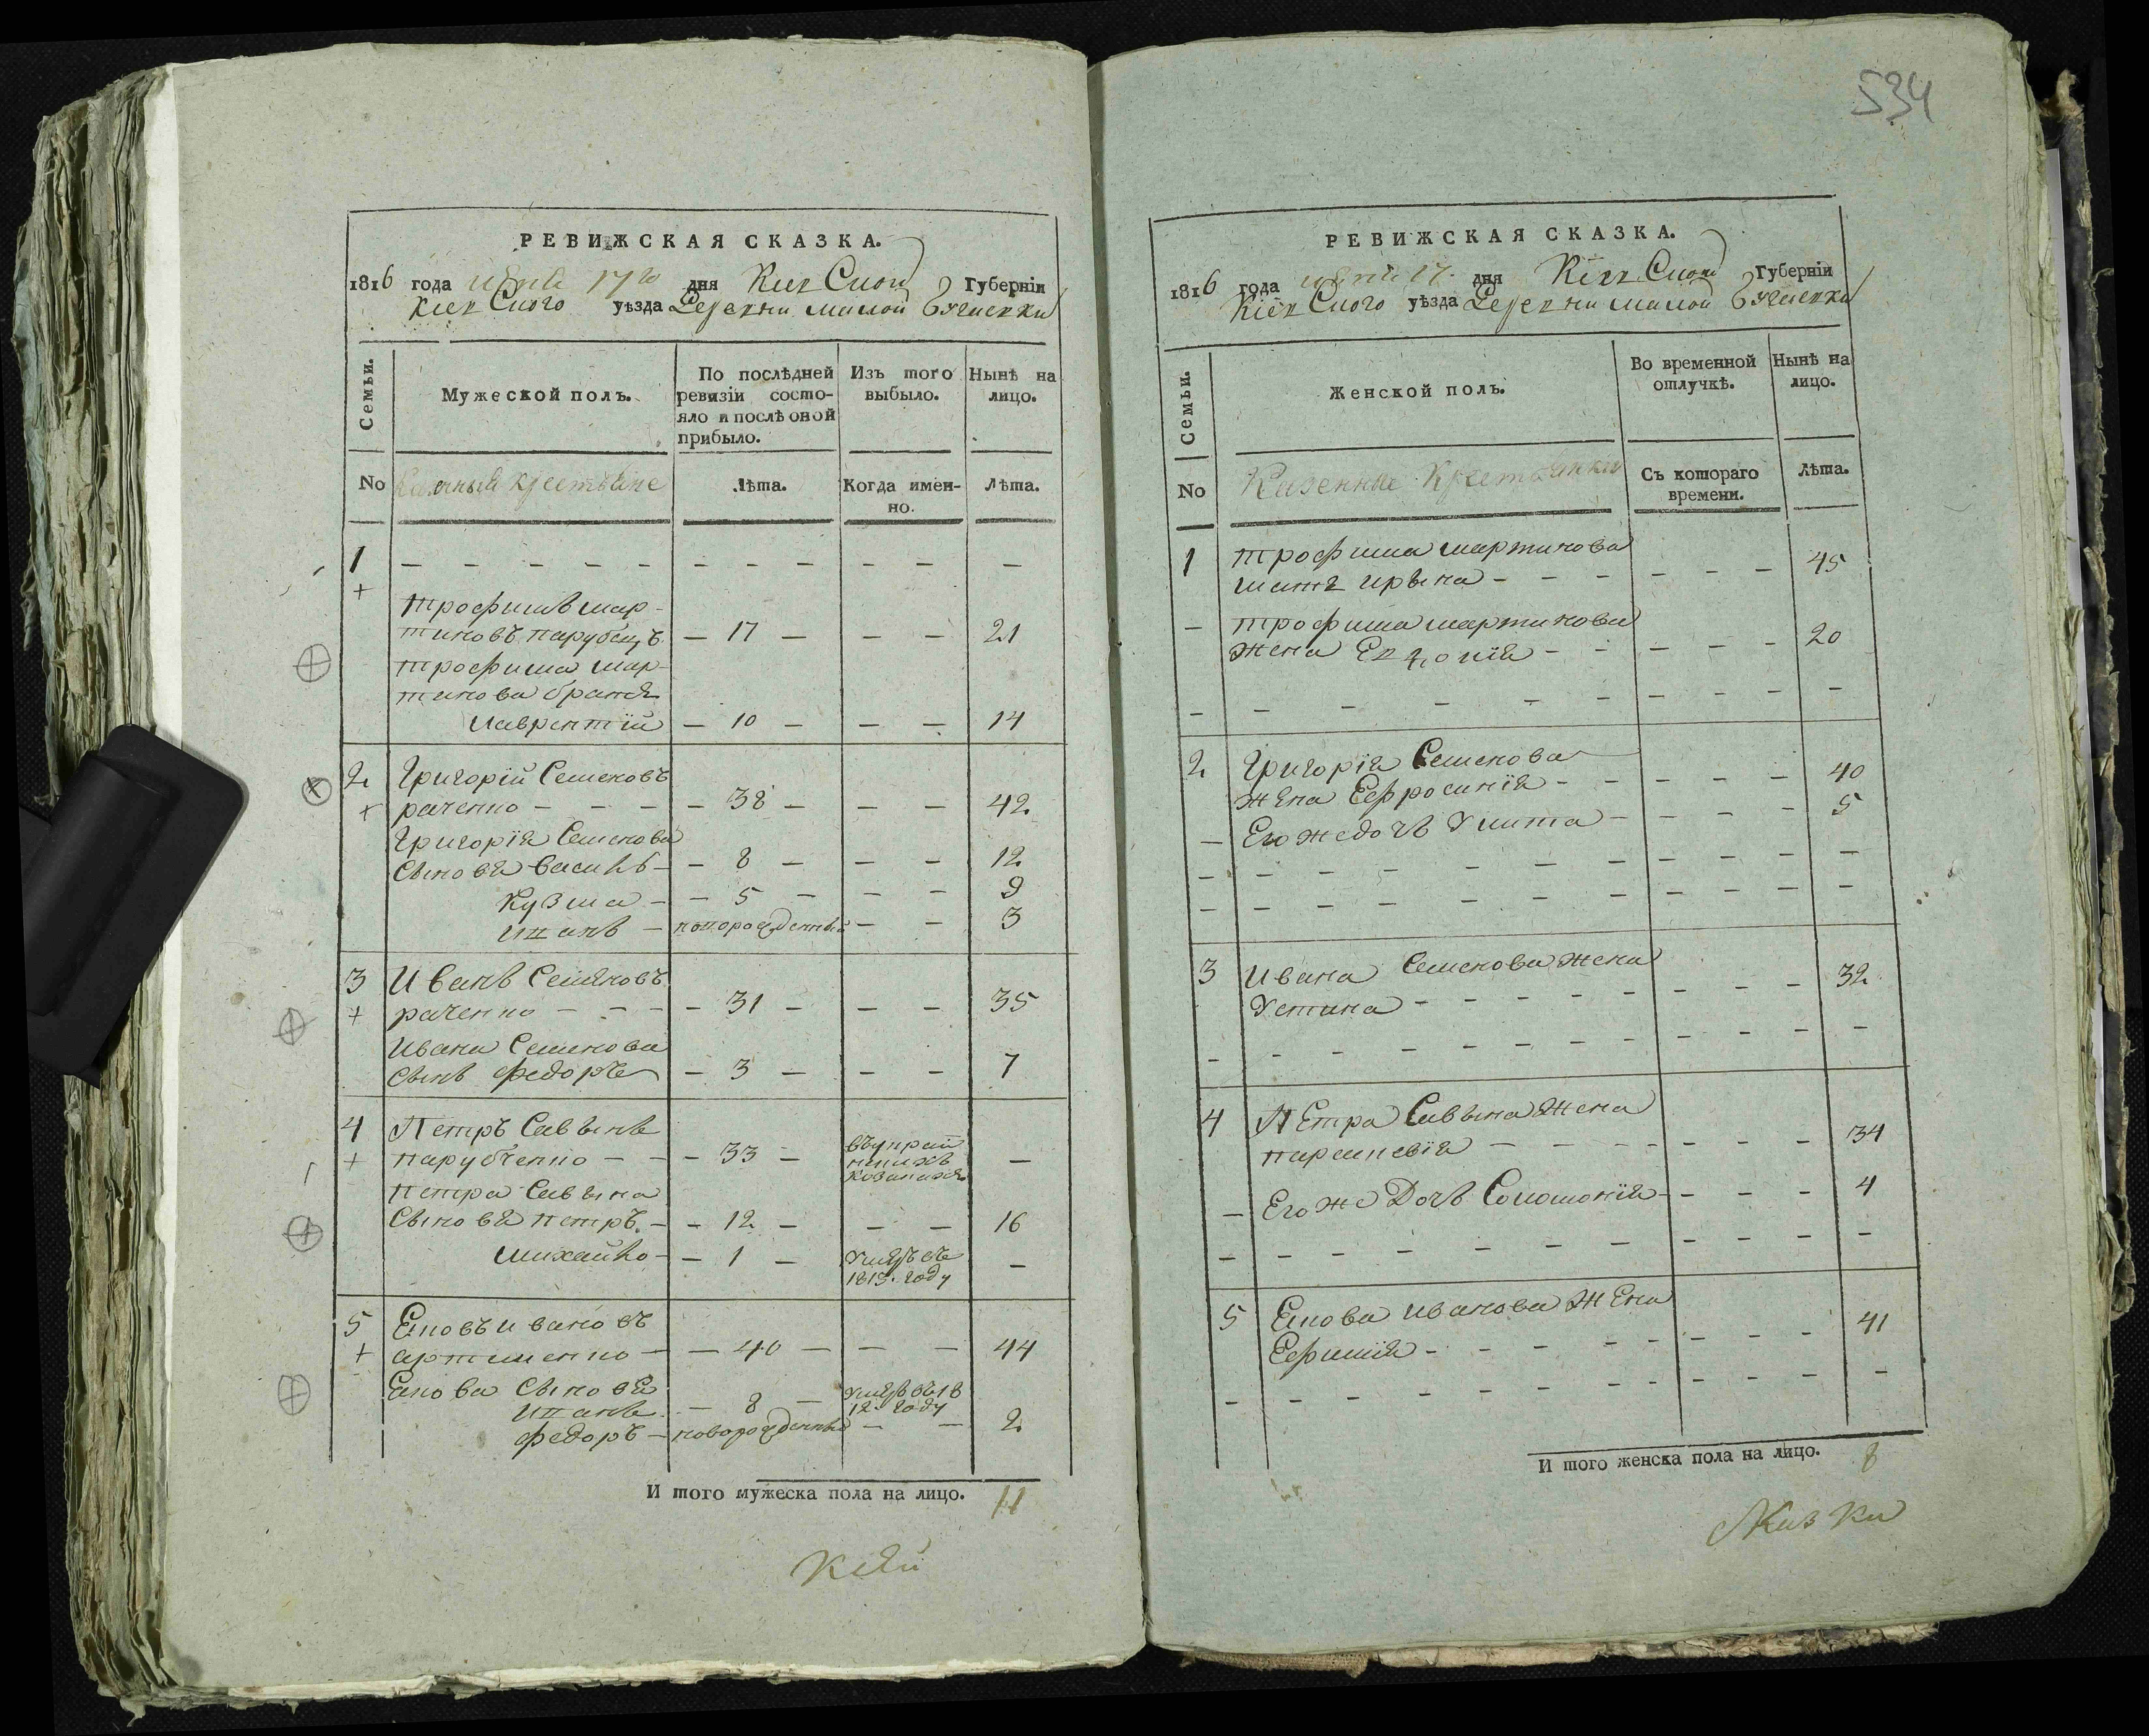 534
РЕВИЖСКАЯ СКАЗКА.
1816 года 17го дня Киевской Губернїи
Киевского уѣзда Деревни малой Бугаевки
Семьи.
Мужеской полъ.
По послѣдней ревизїи состо-
яло и послѣ оной
прибыло.
Изъ того
выбыло.
Нынѣ на
лицо.
No
Казенныи крестьяне
Лѣта.
Когда имен-
но.
Лѣта.
1 — — — — — — — — — — — — —
+
трофимъ мар-
тиновъ парубецъ — 17 — — — 21
трофима мар-
тинова братъя
лаврентїй — 10 — — — 14
2 Григорїй Семеновъ
+ раченко — — — — 38 — — — 42
Григорїя Семенова
Сыновя василь — — 8 — — — 12
Кузма — — 5 — — — 9
иванъ — новорожденный — — 3
3 Иванъ Семеновъ
+ раченко — — — — 31 — — — 35
Ивана Семенова
Сынъ федоръ — 3 — — — 7
4 Петръ Савынъ
+ парубченко — — — 33 — —
козакахъ
петра Савына
Сыновя петръ — — 12 — — — 16
михайло — — 1 — умеръ въ —
1815. году
5 Еновъ ивановъ
+ артименко — — 40 — — — 44
Енова Сыновя
иванъ — 8 — умеръ въ 18
12. году
федоръ — новорожденный — — 2
И того мужеска пола на лицо. 11
РЕВИЖСКАЯ СКАЗКА.
1816 года 17. дня Кїевской Губернїи
Кїевского уѣзда Деревни малой Бугаевки
Семьи.
Женской полъ.
Во временной
отлучкѣ.
Нынѣ на
лицо.
No
Казенные Крестьянки
Съ котораго
времени.
Лѣта.
1 трофима мартинова
мать ирына — — — — — — 45
— трофима мартинова
жена Евдокїя — — — — — 20
— — — — — — — — — —
2 Григорїя Семенова
жена Ефросинїя — — — — — 40
— Его же дочъ Улита — — — — 5
— — — — — — — — — — —
— — — — — — — — — — —
3 Ивана Семенова жена
Устина — — — — — — — — 32
— — — — — — — — — — —
4 Петра Савына Жена
параскевїя — — — — — — — 34
— Его же Дочъ Соломонїя — — — — 4
— — — — — — — — — — —
5 Енова иванова Жена
Ефимїя — — — — — — — — 41
— — — — — — — — — — —
И того женска пола на лицо. 8